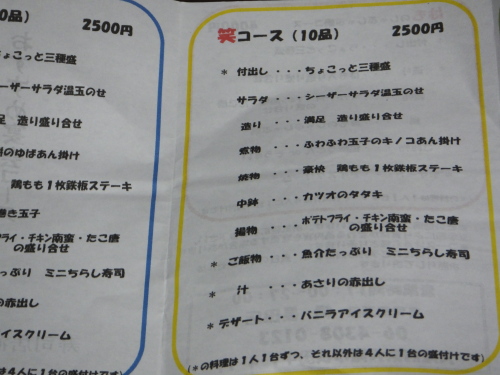 0品) 2500円
ょこっと三種盛
ーザーサラダ温玉のせ
足 造り盛り合せ
のゆばあん掛け
鶏もも1枚鉄板ステーキ
き玉子
フライ・チキン南蛮・たこ唐
の盛り合せ
っぷり ミニちらし寿司
の赤出し
イスクリーム
は4人に1台の盛付けです)
笑コース(10品) 2500円
* 付出し ・・・ちょこっと三種盛
サラダ ・・・シーザーサラダ温玉のせ
造り ・・・満足 造り盛り合せ
煮物 ・・・ふわふわ玉子のキノコあん掛け
焼物 ・・・豪快 鶏もも1枚鉄板ステーキ
中鉢 ・・・カツオのタタキ
揚物 ・・・ポテトフライ・チキン南蛮・たこ唐
の盛り合せ
* ご飯物 ・・・魚介たっぷり ミニちらし寿司
* 汁 ・・・あさりの赤出し
* デザート・・・バニラアイスクリーム
(*の料理は1人1台ずつ、それ以外は4人に1台の盛付けです)